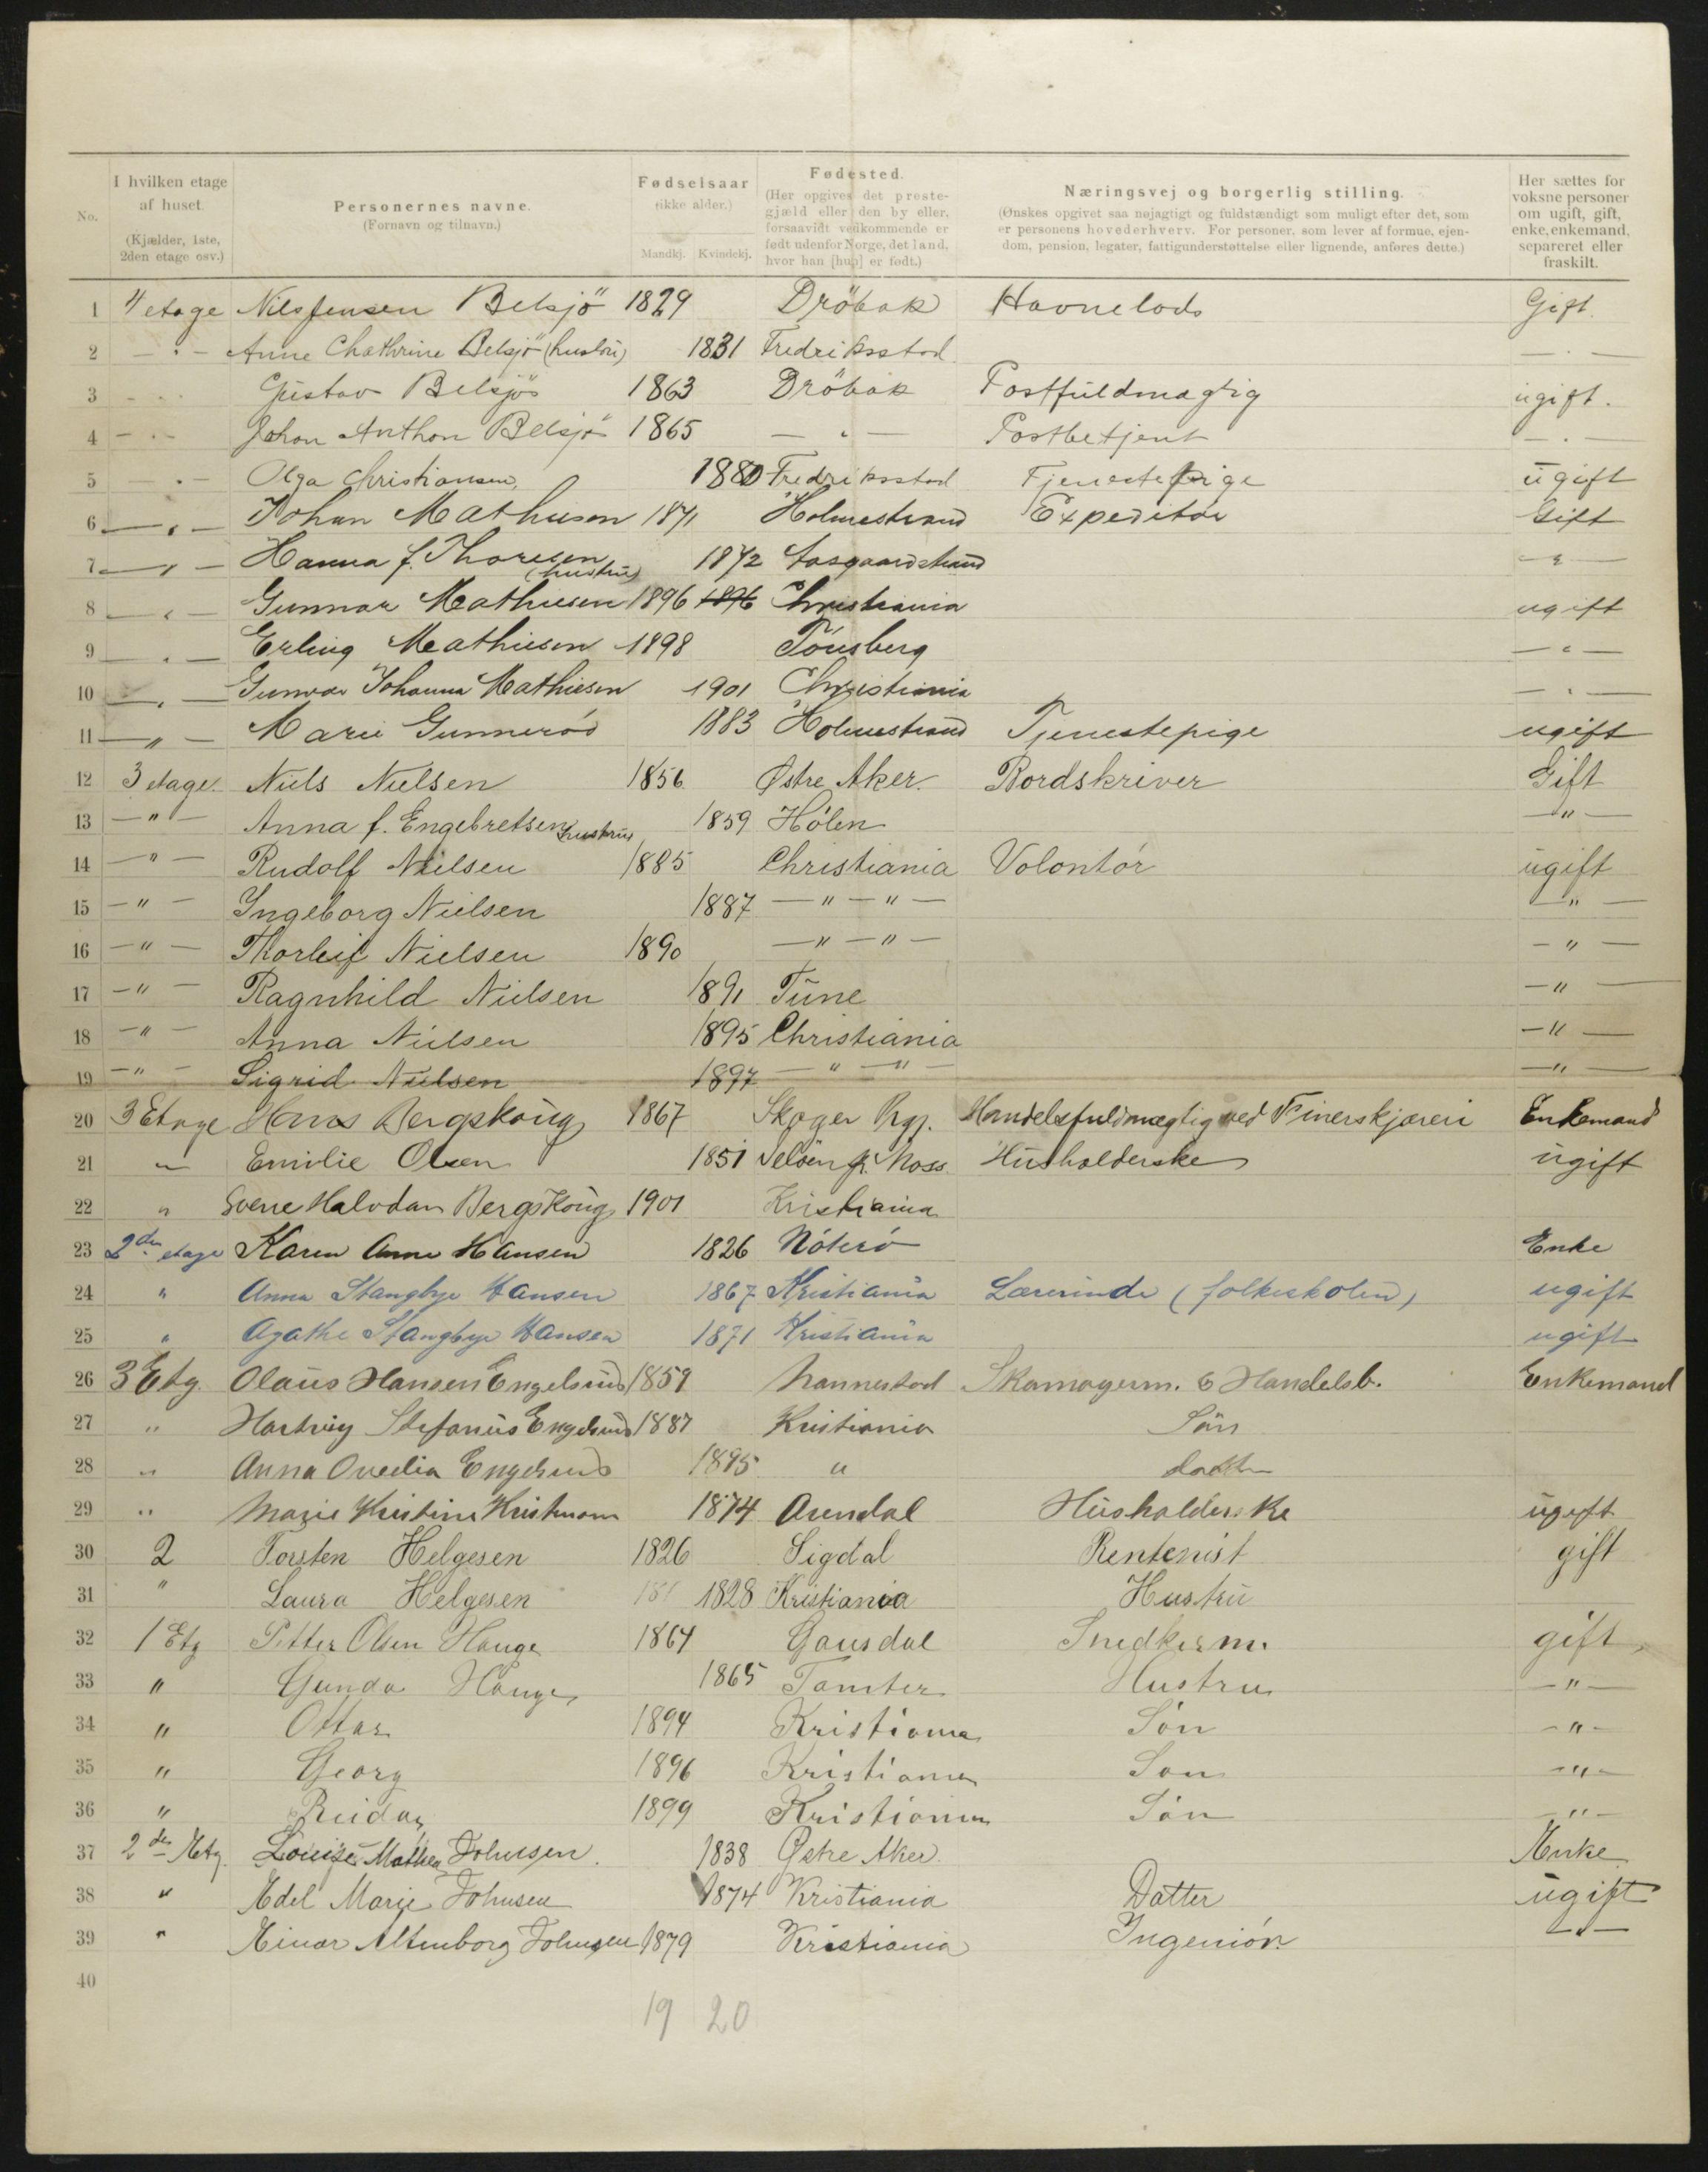 No.
I hvilken etage af huset. (Kjælder, 1ste, 2den etage osv.)
Personernes navne. (Fornavn og tilnavn.)
Fødselsaar (ikke alder.) Mandkj. Kvindekj.
Fødested. (Her opgives det prestegjæld eller den by eller, forsaavidt vedkommende er født udenfor Norge, det land, hvor han [hun] er født.)
Næringsvej og borgerlig stilling. (Ønskes opgivet saa nøjagtigt og fuldstændigt som muligt efter det, som er personens hovederhverv. For personer, som lever af formue, ejendom, pension, legater, fattigunderstøttelse eller lignende, anføres dette.)
Her sættes for voksne personer om ugift, gift, enke, enkemand, separeret eller fraskilt.
1 4 etage Nils Jensen Belsjö 1829 Dröbak Havnelods Gift.
2 — " — Anne Chathrine Belsjö (hustru) 1831 Fredriksstad — " —
3 — " — Gustav Belsjö 1863 Dröbak Postfuldmægtig ugift.
4 — " — Johan Anthon Belsjö 1865 — " — Postbetjent — " —
5 — " — Olga Christiansen, 1880 Fredriksstad Tjenestepige ugift
6 — " — Johan Mathiesen 1871 Holmestrand Expeditør Gift
7 — " — Hanna f. Thoresen (hustru) 1872 Aasgaardstrand — " —
8 — " — Gunnar Mathiesen 1896 1896 Christiania ugift
9 — " — Erling Mathiesen 1898 Tönsberg — " —
10 — " — Gunvor Johanna Mathiesen 1901 Christiania — " —
11 — " — Marie Gunnerød 1883 Holmestrand Tjenestepige ugift
12 3 etage. Niels Nielsen 1856 Østre Aker. Bordskriver Gift
13 — " — Anna f. Engebretsen hustru 1859 Hølen — " —
14 — " — Rudolf Nielsen 1885 Christiania Volontør ugift
15 — " — Ingeborg Nielsen 1887 — " — " — — " —
16 — " — Thorleif Nielsen 1890 — " — " — — " —
17 — " — Ragnhild Nielsen 1891 Tune — " —
18 — " — Anna Nielsen 1895 Christiania — " —
19 — " — Sigrid Nielsen 1897 — " — " — — " —
20 3 Etage Hans Bergskoug 1867 Skoger Prgj. Handelsfuldmægtig ved Finerskjæreri Enkemand
21 " Emilie Olsen 1851 Jeløen pr. Moss. Husholderske ugift
22 " Sverre Halvdan Bergskoug 1901 Kristiania
23 2den etage Karen Anne Hansen 1826 Nøterø Enke
24 " Anna Stangbye Hansen 1867 Kristiania Lærerinde (folkeskolen) ugift
25 " Agathe Stangbye Hansen 1871 Kristiania ugift
26 3 Etg. Olaus Hansen Engelsrud 1859 Nannestad Skomagerm. & Handelsb. Enkemand
27 " Hartvig Stefanus Engelsrud 1887 Kristiania Sön
28 " Anna Ovedia Engelsrud 1895 " datter
29 " Marie Kristine 1874 Arendal Husholderske ugift
30 2 Torsten Helgesen 1826 Sigdal Rentenist gift
31 " Laura Helgesen 181 1828 Kristiania Hustru
32 1 Etg Petter Olsen Hauge 1864 Gausdal Snedkerm. gift
33 " Gunda Hauge 1865 Tomter Hustru — " —
34 " Ottar 1894 Kristiania Søn — " —
35 " Georg 1896 Kristiania Søn — " —
36 " Reidar 1899 Kristiania Søn — " —
37 2den Etg. Louise Mathea Johnsen. 1838 Østre Aker. Enke
38 " Edel Marie Johnsen 1874 Kristiania Datter ugift
39 " Einar Altenborg Johnsen 1879 Kristiania Ingeniør. — " —
40
19 20